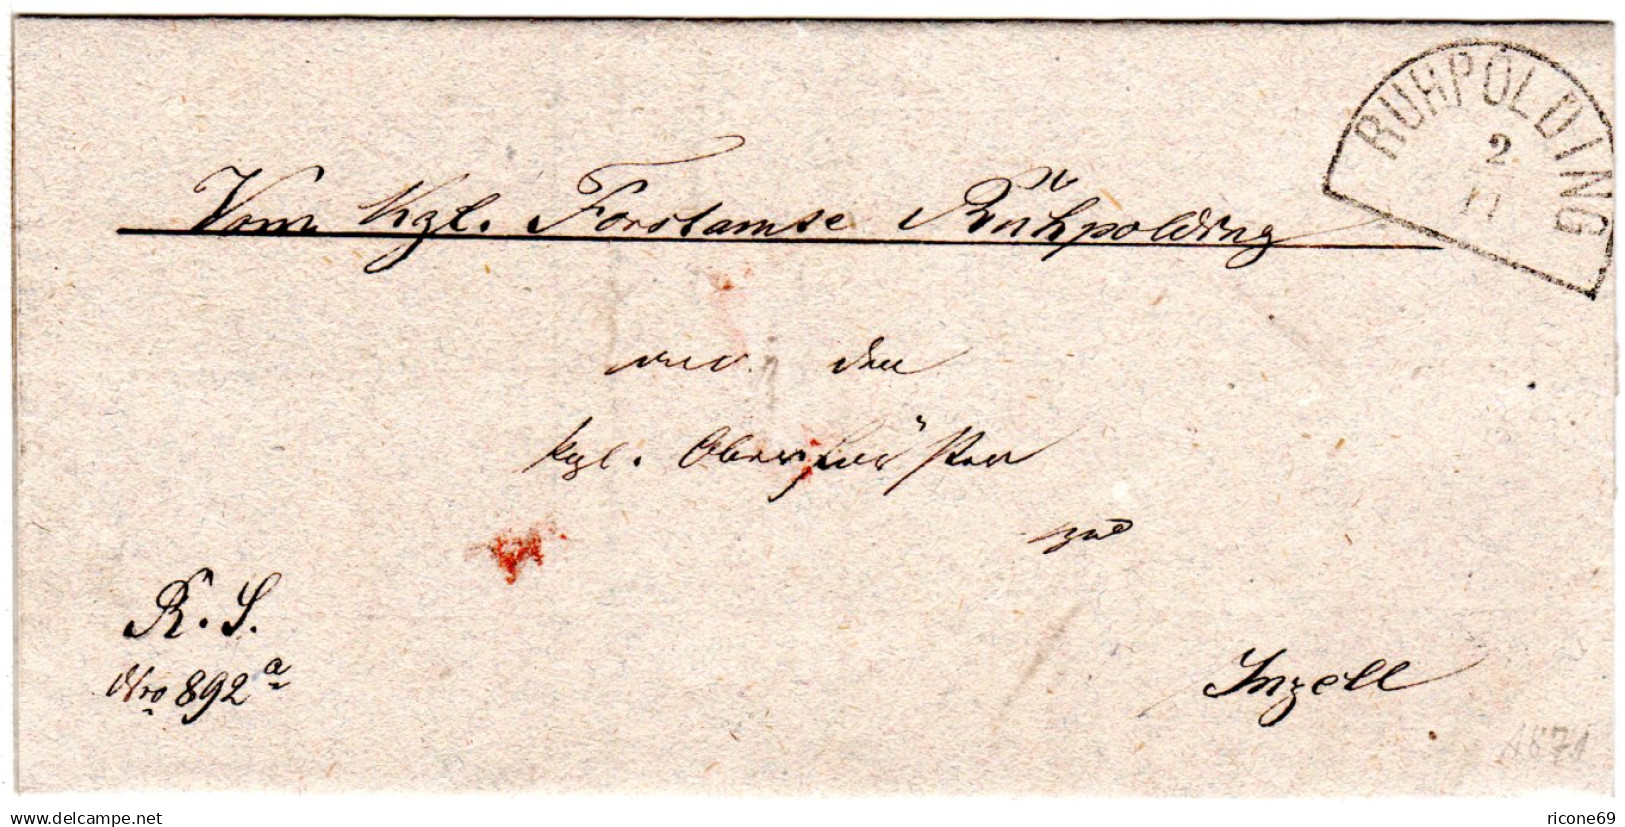 RUHPOLDING
2
11
Vom Kgl. Forstamte Ruhpolding
den
kgl. Oberförster
zu
R. S.
Nro 892 a
Inzell
1871
delcampe.net
ricone69